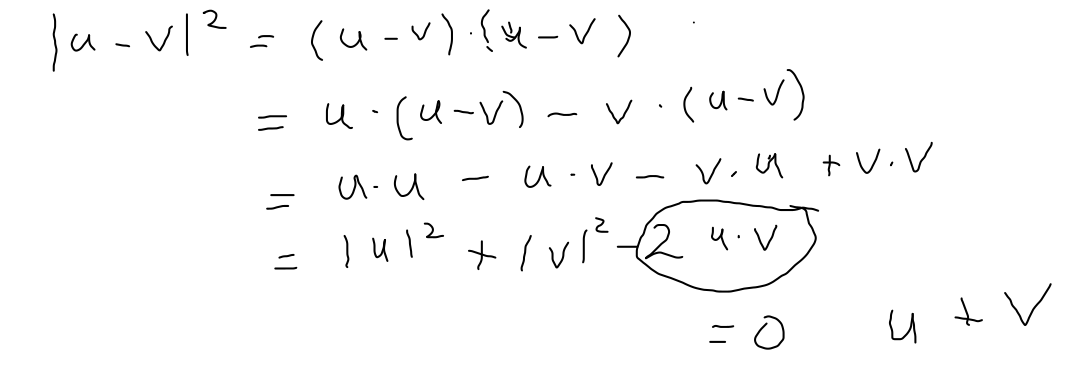 |u - v|² = (u - v) · (u - v)
= u · (u - v) - v · (u - v)
= u · u - u · v - v · u + v · v
= |u|² + |v|² - 2 u · v
= 0 u + v